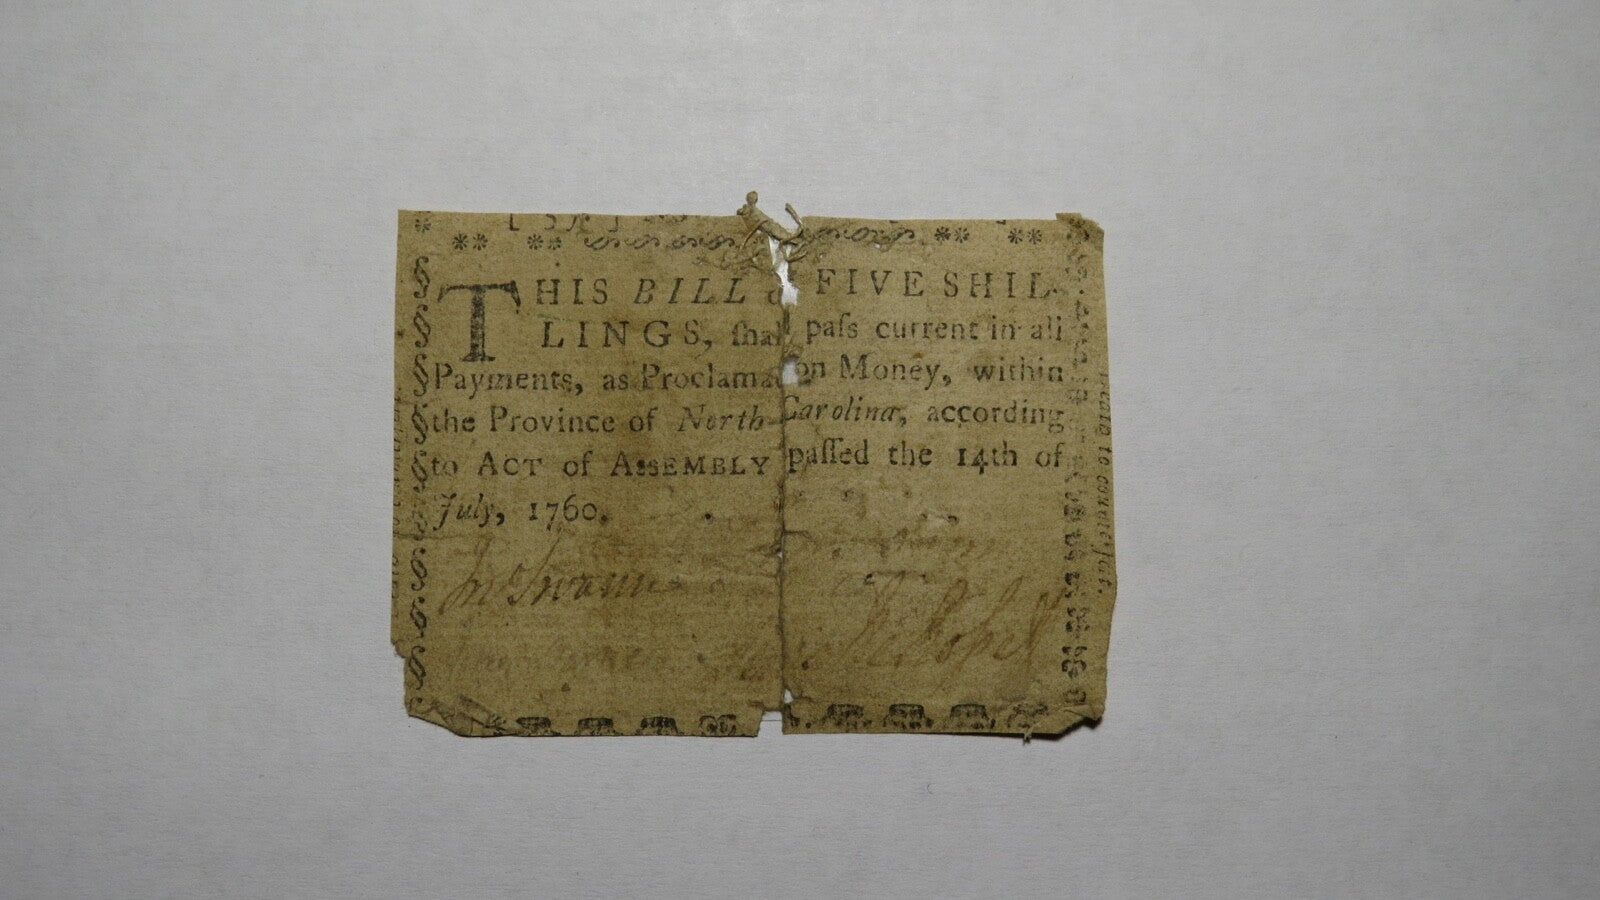 THIS BILL of FIVE SHIL-
LINGS, ſhall paſs current in all
Payments, as Proclamation Money, within
the Province of North-Carolina, according
to ACT of ASSEMBLY paſſed the 14th of
July, 1760.
Jno Swann
to counterfeit.